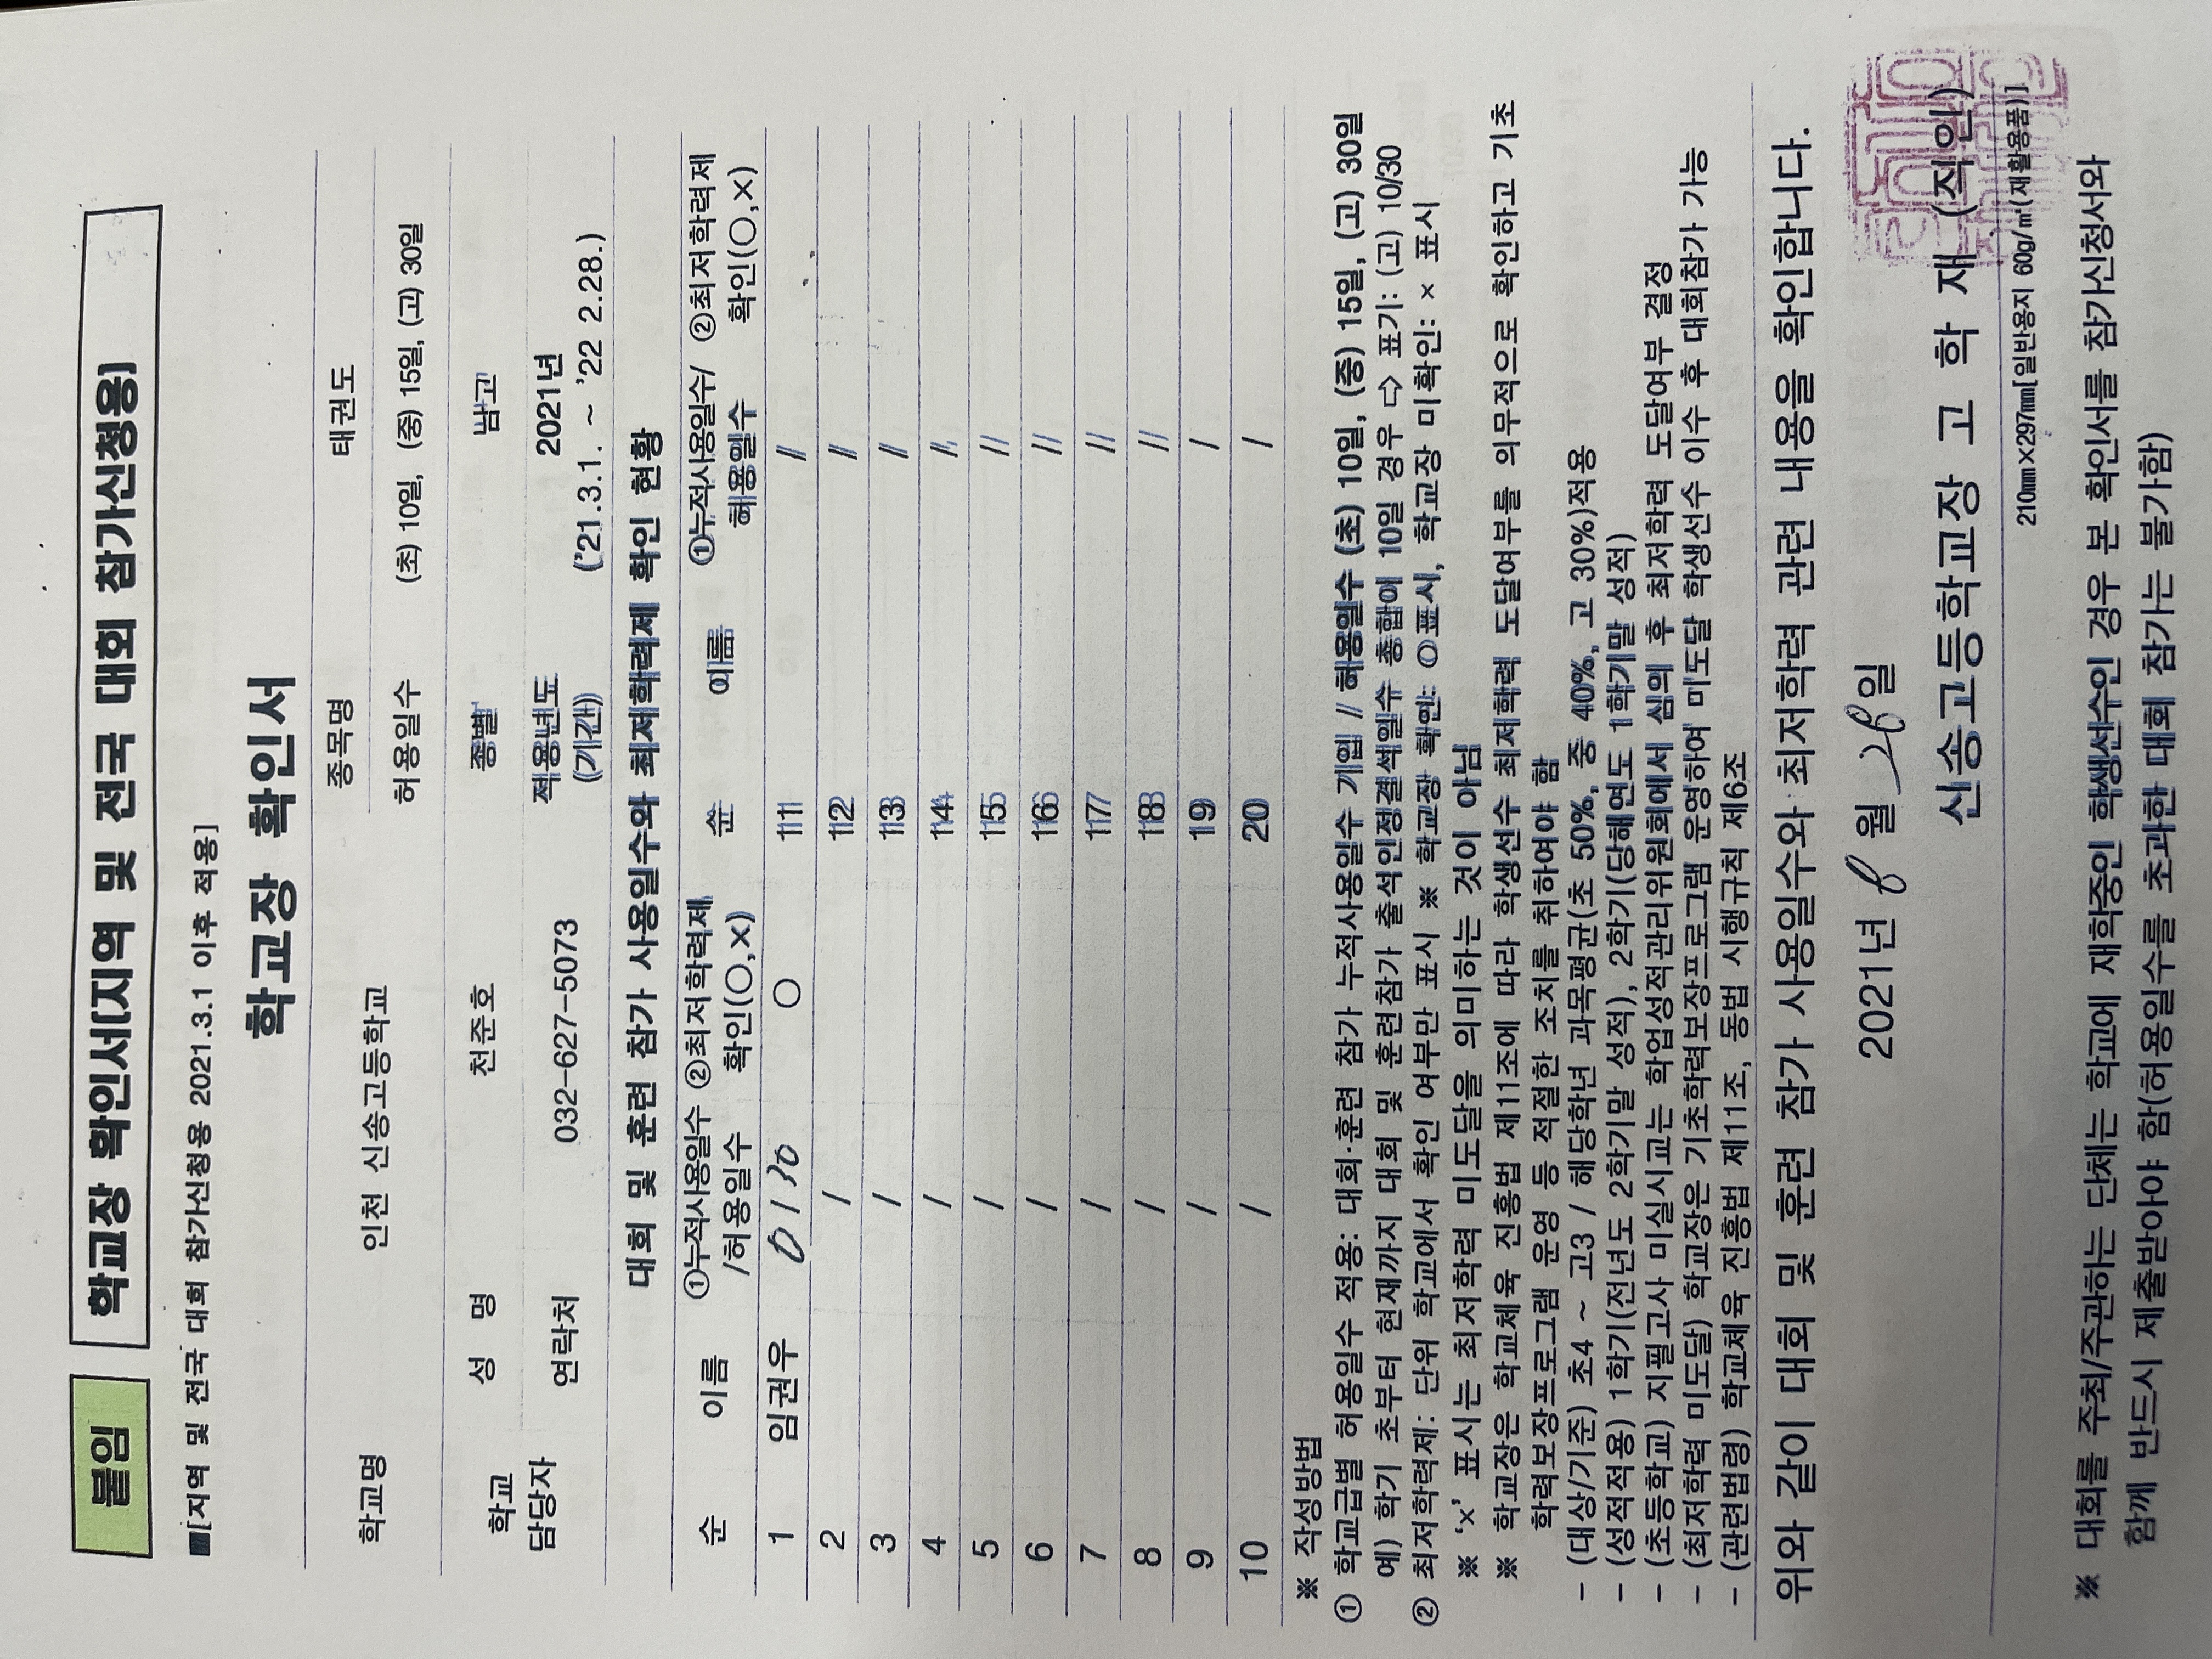 붙임
학교장 확인서(지역 및 전국 대회 참가신청용)
■[지역 및 전국 대회 참가신청용 2021.3.1 이후 적용]
학교장 확인서
학교명 인천 신송고등학교 종목명 태권도
허용일수 (초) 10일, (중) 15일, (고) 30일
학교 담당자 성 명 천준호 종별 남고
연락처 032-627-5073 적용년도 (기간) 2021년 ('21.3.1. ~ '22 2.28.)
대회 및 훈련 참가 사용일수와 최저학력제 확인 현황
순 이름 ①누적사용일수 /허용일수 ②최저학력제 확인(○,×) 순 이름 ①누적사용일수/ 허용일수 ②최저학력제 확인(○,×)
1 임권우 0 / 30 ○ 11 /
2 / 12 /
3 / 13 /
4 / 14 /
5 / 15 /
6 / 16 /
7 / 17 /
8 / 18 /
9 / 19 /
10 / 20 /
※ 작성방법
① 학교급별 허용일수 적용: 대회·훈련 참가 누적사용일수 기입 // 허용일수 (초) 10일, (중) 15일, (고) 30일
예) 학기 초부터 현재까지 대회 및 훈련참가 출석인정결석일수 총합이 10일 경우 ⇨ 표기: (고) 10/30
② 최저학력제: 단위 학교에서 확인 여부만 표시 ※ 학교장 확인: ○표시, 학교장 미확인: × 표시
※ '×' 표시는 최저학력 미도달을 의미하는 것이 아님
※ 학교장은 학교체육 진흥법 제11조에 따라 학생선수 최저학력 도달여부를 의무적으로 확인하고 기초
학력보장프로그램 운영 등 적절한 조치를 취하여야 함
- (대상/기준) 초4 ~ 고3 / 해당학년 과목평균(초 50%, 중 40%, 고 30%)적용
- (성적적용) 1학기(전년도 2학기말 성적), 2학기(당해연도 1학기말 성적)
- (초등학교) 지필고사 미실시교는 학업성적관리위원회에서 심의 후 최저학력 도달여부 결정
- (최저학력 미도달) 학교장은 기초학력보장프로그램 운영하여 미도달 학생선수 이수 후 대회참가 가능
- (관련법령) 학교체육 진흥법 제11조, 동법 시행규칙 제6조
위와 같이 대회 및 훈련 참가 사용일수와 최저학력 관련 내용을 확인합니다.
2021년 월 일
신송고등학교장 고 학 재 (직인)
210㎜×297㎜[일반용지 60g/㎡(재활용품)]
※ 대회를 주최/주관하는 단체는 학교에 재학중인 학생선수인 경우 본 확인서를 참가신청서와
함께 반드시 제출받아야 함(허용일수를 초과한 대회 참가는 불가함)